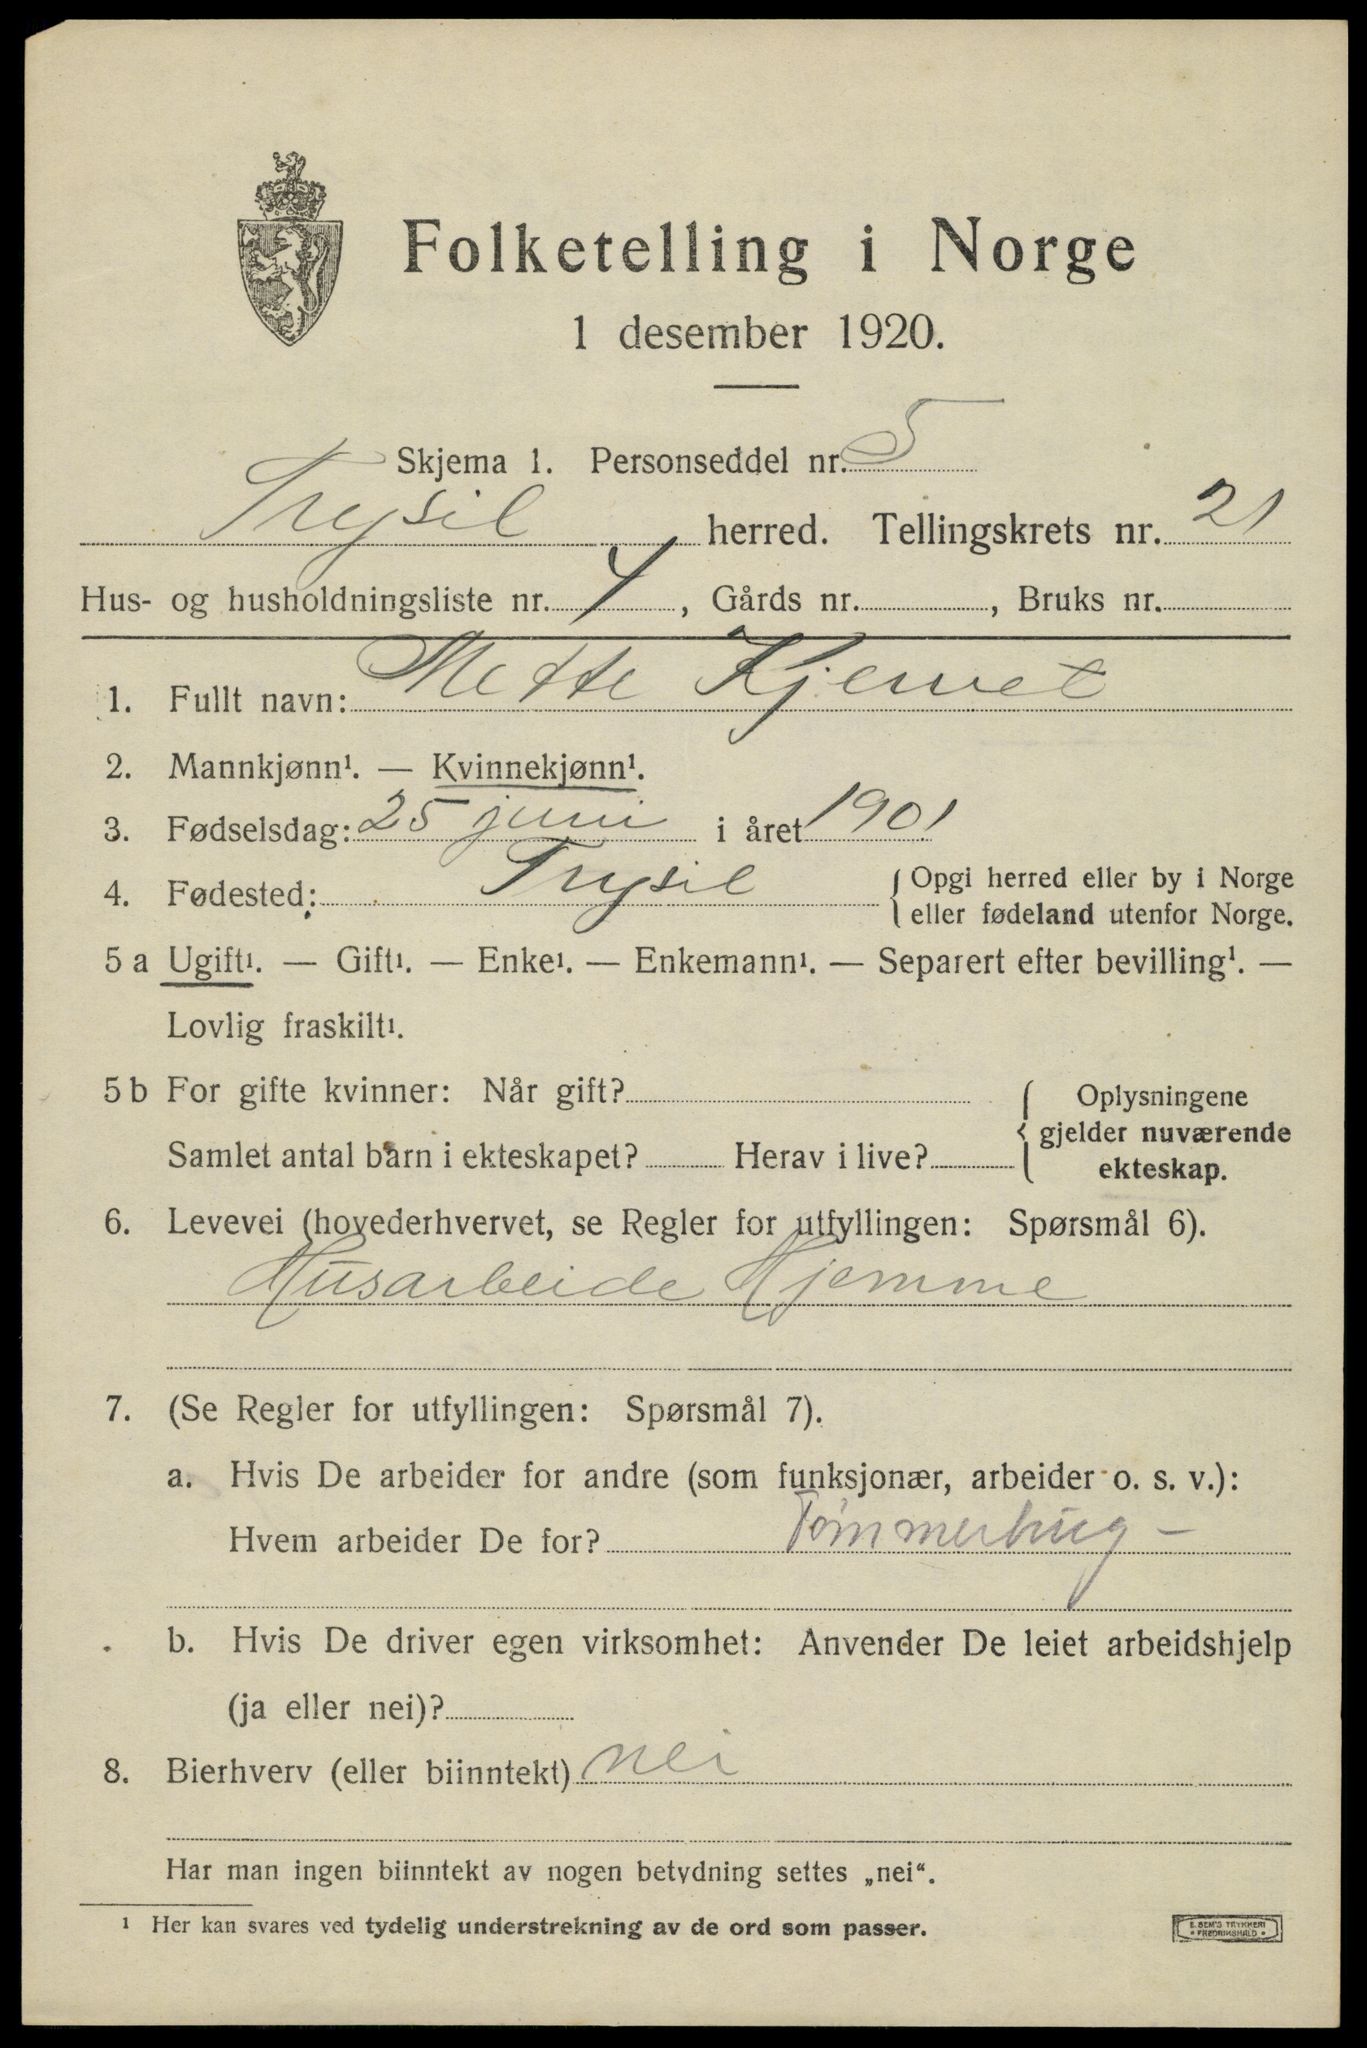 Folketelling i Norge
1 desember 1920.
Skjema 1. Personseddel nr. 5
Trysil herred. Tellingskrets nr. 21
Hus- og husholdningsliste nr. 4, Gårds nr. , Bruks nr.
1. Fullt navn: Mette Kjernet
2. Mannkjønn¹. — Kvinnekjønn¹.
3. Fødselsdag: 25 juni i året 1901
4. Fødested: Trysil { Opgi herred eller by i Norge
eller fødeland utenfor Norge.
5 a Ugift¹. — Gift¹. — Enke¹. — Enkemann¹. — Separert efter bevilling¹. —
Lovlig fraskilt¹.
5 b For gifte kvinner: Når gift? { Oplysningene
gjelder nuværende
Samlet antal barn i ekteskapet? Herav i live? ekteskap.
6. Levevei (hovederhvervet, se Regler for utfyllingen: Spørsmål 6).
Husarbeide Hjemme
7. (Se Regler for utfyllingen: Spørsmål 7).
a. Hvis De arbeider for andre (som funksjonær, arbeider o. s. v.):
Hvem arbeider De for? Tømmerhug —
b. Hvis De driver egen virksomhet: Anvender De leiet arbeidshjelp
(ja eller nei)?
8. Bierhverv (eller biinntekt) nei
Har man ingen biinntekt av nogen betydning settes „nei“.
¹ Her kan svares ved tydelig understrekning av de ord som passer.
E. SEM'S TRYKKERI
• FREDRIKSHALD •